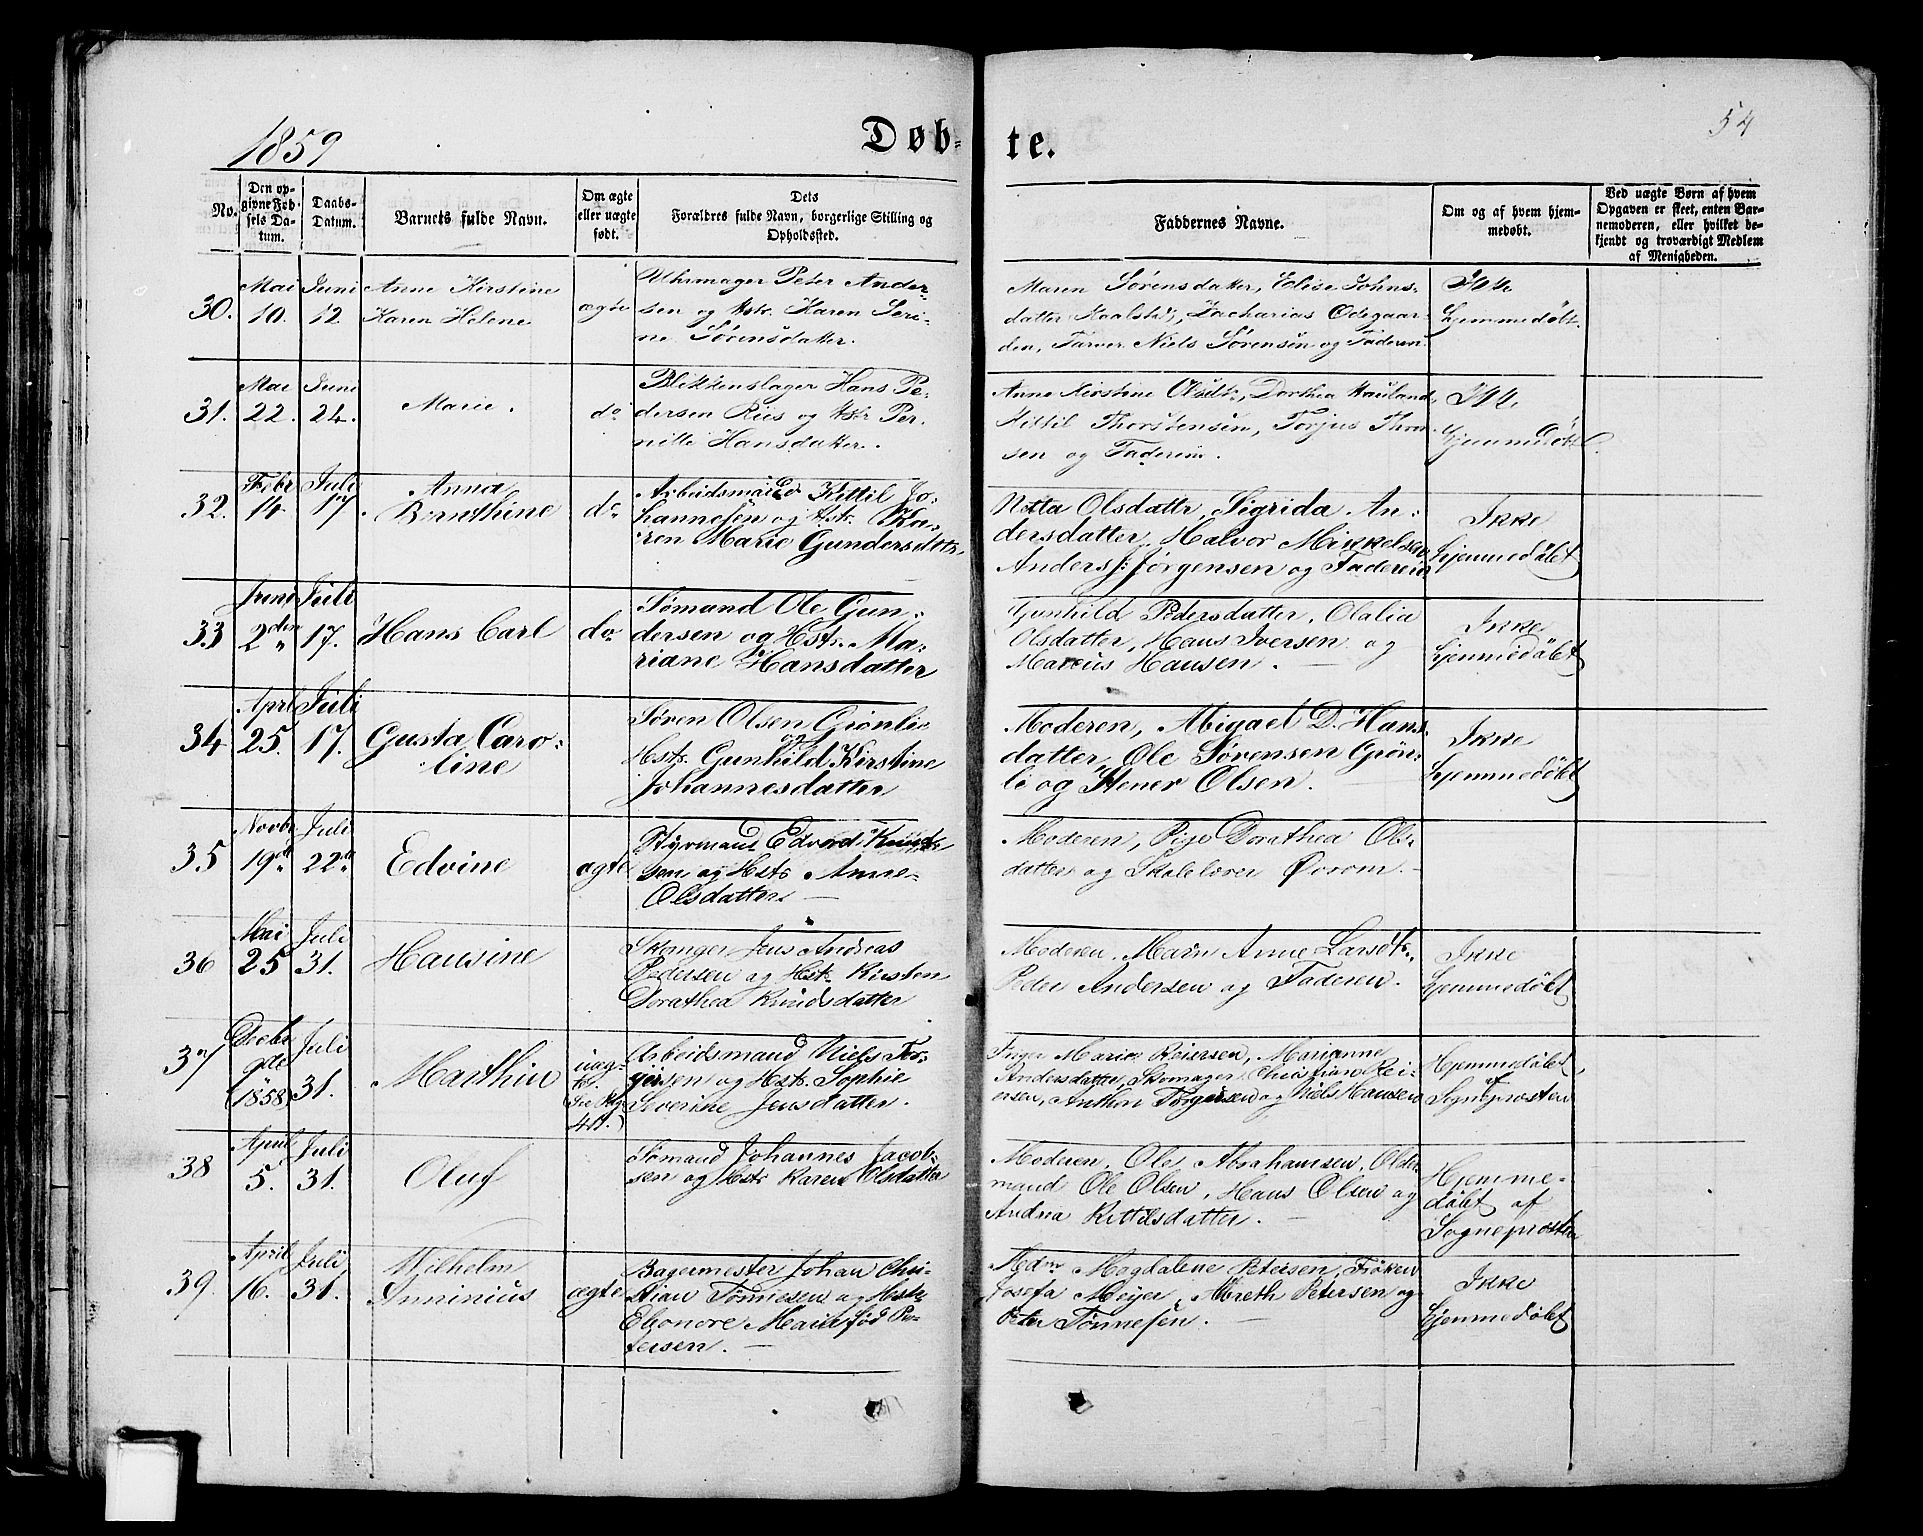 1859
Døb- te.
54
No.
Den op-
givne Fød-
sels Da-
tum.
Daabs-
Datum.
Barnets fulde Navn.
Om ægte
eller uægte
født.
Dets
Forældres fulde Navn, borgerlige Stilling og
Opholdssted.
Faddernes Navne.
Om og af hvem hjem-
medøbt.
Ved uægte Børn af hvem
Opgaven er skeet, enten Bar-
nemoderen, eller hvilket be-
kjendt og troværdigt Medlem
af Menigheden.
30.
Mai
10.
Juni
12
Anne Kirstine
Karen Helene
ægte
Uhrmager Peter Ander-
sen og Hstr. Karen Seri-
ne Sørensdatter.
Maren Sørensdatter, Elise Johns-
datter Zacharias Odegaar-
den, Farver Niels Sørensen og Faderen.
Ikke
hjemmedøbt.
31.
Mai
22.
Juni
24.
Marie.
do
Blikkenslager Hans Pe-
dersen Riis og Hstr Per-
nille Hansdatter.
Anne Kirstine Olsdtr, Dorthea Hauland,
Kittil Thorstensen, Torjus Thor-
sen og Faderen.
Ikke
hjemmedøbt.
32.
Febr
14.
Juli
17.
Anna
Bernthine
do
Arbeidsmand Kittil Jo-
hannesen og Hstr. Ka-
ren Marie Gundersdttr.
Netta Olsdattr, Sigrida An-
dersdatter, Halvor Mikkelsen,
Anders J: Jørgensen og Faderen
Ikke
hjemmedøbt
33
Juni
2den
Juli
17.
Hans Carl
do
Sømand Ole Gun-
dersen og Hstr. Ma-
riane Hansdatter
Gunhild Pedersdatter, Olalia
Olsdatter, Hans Iversen og
Marcus Hansen.
Ikke
hjemmedøbt
34
Aprl
25.
Juli
17.
Gusta Caro-
line
Søren Olsen Grønlie
og
Hstr. Gunhild Kirstine
Johannesdatter
Moderen, Abigael D. Hans-
datter, Ole Sørensen Grøn-
li og Stener Olsen.
Ikke
hjemmedøbt
35
Novbr
19de
Juli
22de
Edvine
ægte
Styrmand Edvard Knud-
sen og Hstr Anne
Olsdatter
Moderen, Pige Dorathea Ols-
datter og Skolelærer Ørom.
36
Mai
25
Juli
31.
Hansine
Skomager Jens Andreas
Pedersen og Hstr. Kirsten
Dorathea Knudsdatter
Moderen, Marn Anne Larsdtr.,
Peder Andersen og Faderen.
Ikke
hjemmedøbt
37
Decbr
9de
(1858)
Juli
31.
Marthin
uæg-
te.
Arbeidsmand Niels Tor-
gersen og Hstr. Sophie
Severine Jensdatter.
Inger Marie Reiersen, Marianne
Andersdatter, Skomager Christian Rei-
ersen, Anthon Torgersen og Niels Hansen
Hjemmedøbt
Sogneprosten
38
April
5.
Juli
31.
Oluf
Sømand Johannes Jacob-
sen og Hstr Karen Olsdatter
Moderen, Ole Abrahamsen, Older-
mand Ole Olsen, Hans Olsen og
Andrea Kittilsdatter.
Hjemme-
døbt af
Sogneprosten
39.
April
16.
Juli
31.
Wilhelm
Arminius
ægte
Bagermester Johan Chri-
stian Tønnesen og Hstr
Eleonore Marie fød Pe-
tersen.
Mdm Magdalene Petersen, Frøken
Josefa Meijer, Mreth Petersen og
Peter Tønnesen.
Ikke
hjemmedøbt